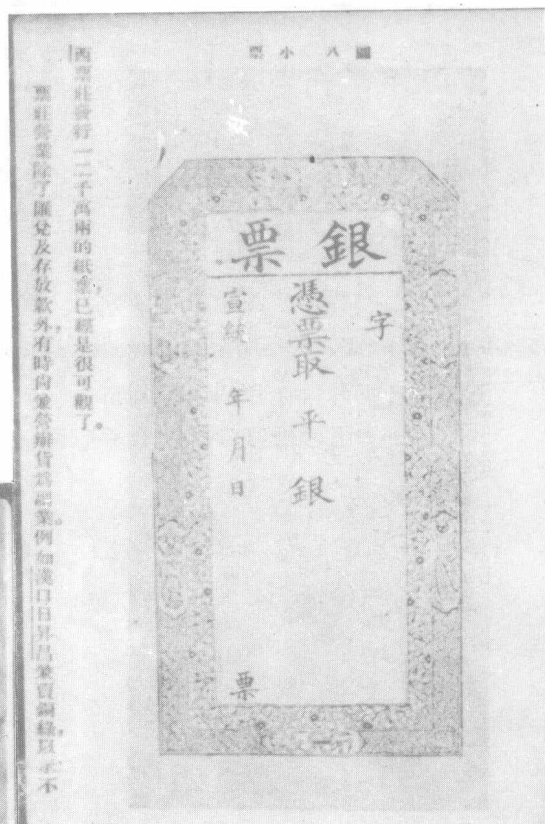 圖八 小票
銀票
字
憑票取 平 銀
宣統 年 月 日
票
西票莊發行一二千萬兩的紙票,已經是很可觀了。
票莊營業除了匯兌及存放款外,有時尚兼營辦貨為副業。例如漢口日昇昌兼賣銅綠,以 不